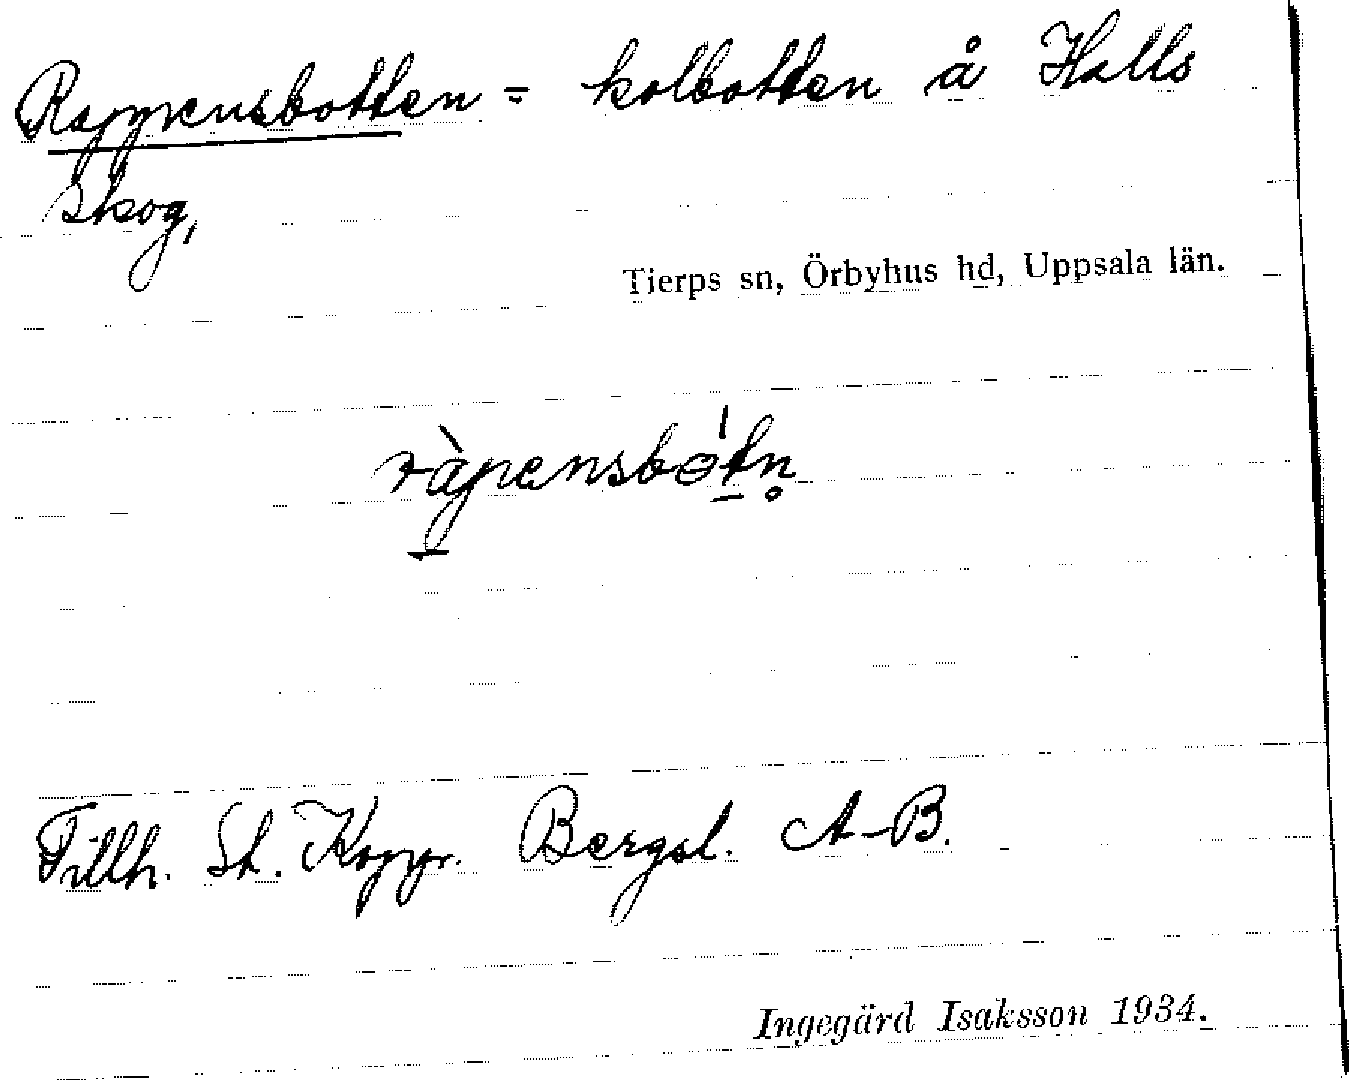 Rappensbotten = kolbotten å Halls
skog,
Tierps sn, Örbyhus hd, Uppsala län.
ràpensbɷ́tn̥
Tillh. St. Koppr. Bergsl. A-B.
Ingegärd Isaksson 1934.